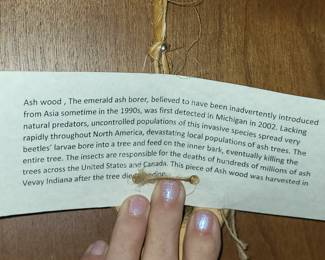 Ash wood , The emerald ash borer, believed to have been inadvertently introduced
from Asia sometime in the 1990s, was first detected in Michigan in 2002. Lacking
natural predators, uncontrolled populations of this invasive species spread very
rapidly throughout North America, devastating local populations of ash trees. The
beetles' larvae bore into a tree and feed on the inner bark, eventually killing the
entire tree. The insects are responsible for the deaths of hundreds of millions of ash
trees across the United States and Canada. This piece of Ash wood was harvested in
Vevay Indiana after the tree died